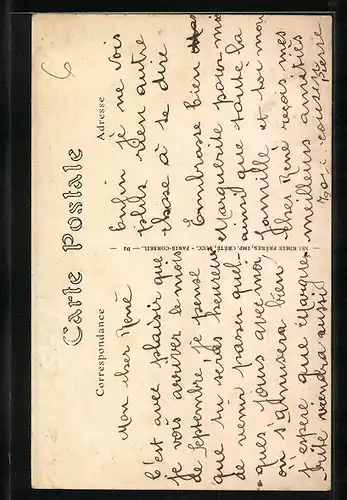 Carte Postale
Correspondance
Adresse
NEURDEIN FRÈRES, IMP. CRÉTÉ, SUCC. - PARIS-CORBEIL.
Mon cher René
C'est avec plaisir que
je vois arriver le mois
de Septembre je pense
que tu serais heureux
de venir passer quel-
ques jours avec moi,
on s'amusera bien,
J'espère que Margue-
rite viendra aussi
Enfin je ne vois
plus rien autre
chose à te dire
Embrasse bien
Marguerite pour moi
ainsi que toute la
famille et toi mon
cher René reçois mes
meilleurs amitiés
Ton cousin Pierre